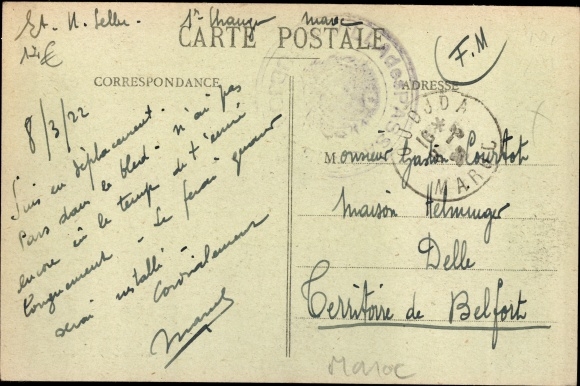 CARTE POSTALE
F.M
CORRESPONDANCE
ADRESSE
8/3/22
Suis en déplacement.
Pars dans le bled. N'ai pas
encore eu le temps de t'écrire
longuement - Le ferai quand
serai installé -
Cordialement
Marcel
OUJDA
MAROC
Monsieur Gaston Courtot
Maison Helminger
Delle
Territoire de Belfort
Maroc